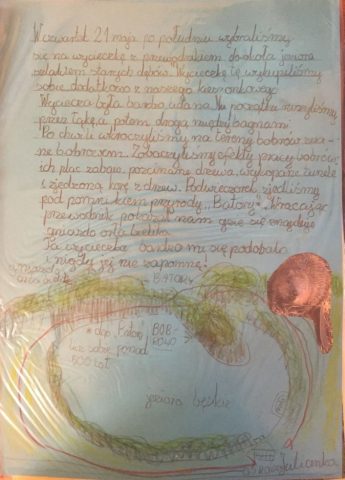 W czwartek 21 maja po południu wybraliśmy
się na wycieczkę z przewodnikiem dookoła jeziora
szlakiem starych dębów. Wycieczkę tę wykupiliśmy
sobie dodatkowo z naszego kieszonkowego.
Wycieczka była bardzo udana. Na początku ruszyliśmy
przez łąkę a potem drogą między bagnami.
Po chwili wkroczyliśmy na tereny bobrów zwa-
ne bobrowem. Zobaczyliśmy efekty pracy bobrów,
ich plac zabaw, pościnane drzewa, wykopane tunele
i zjedzoną korę z drzew. Podwieczorek zjedliśmy
pod pomnikiem przyrody "Batory". Wracając
przewodnik pokazał nam gdzie się znajduje
gniazdo orła bielika.
Ta wycieczka bardzo mi się podobała
i nigdy jej nie zapomnę!
gniazdo
BATORY
* dąb "Batory"
liczy sobie ponad
500 lat
BOB-
ROWO
jezioro
Julianka